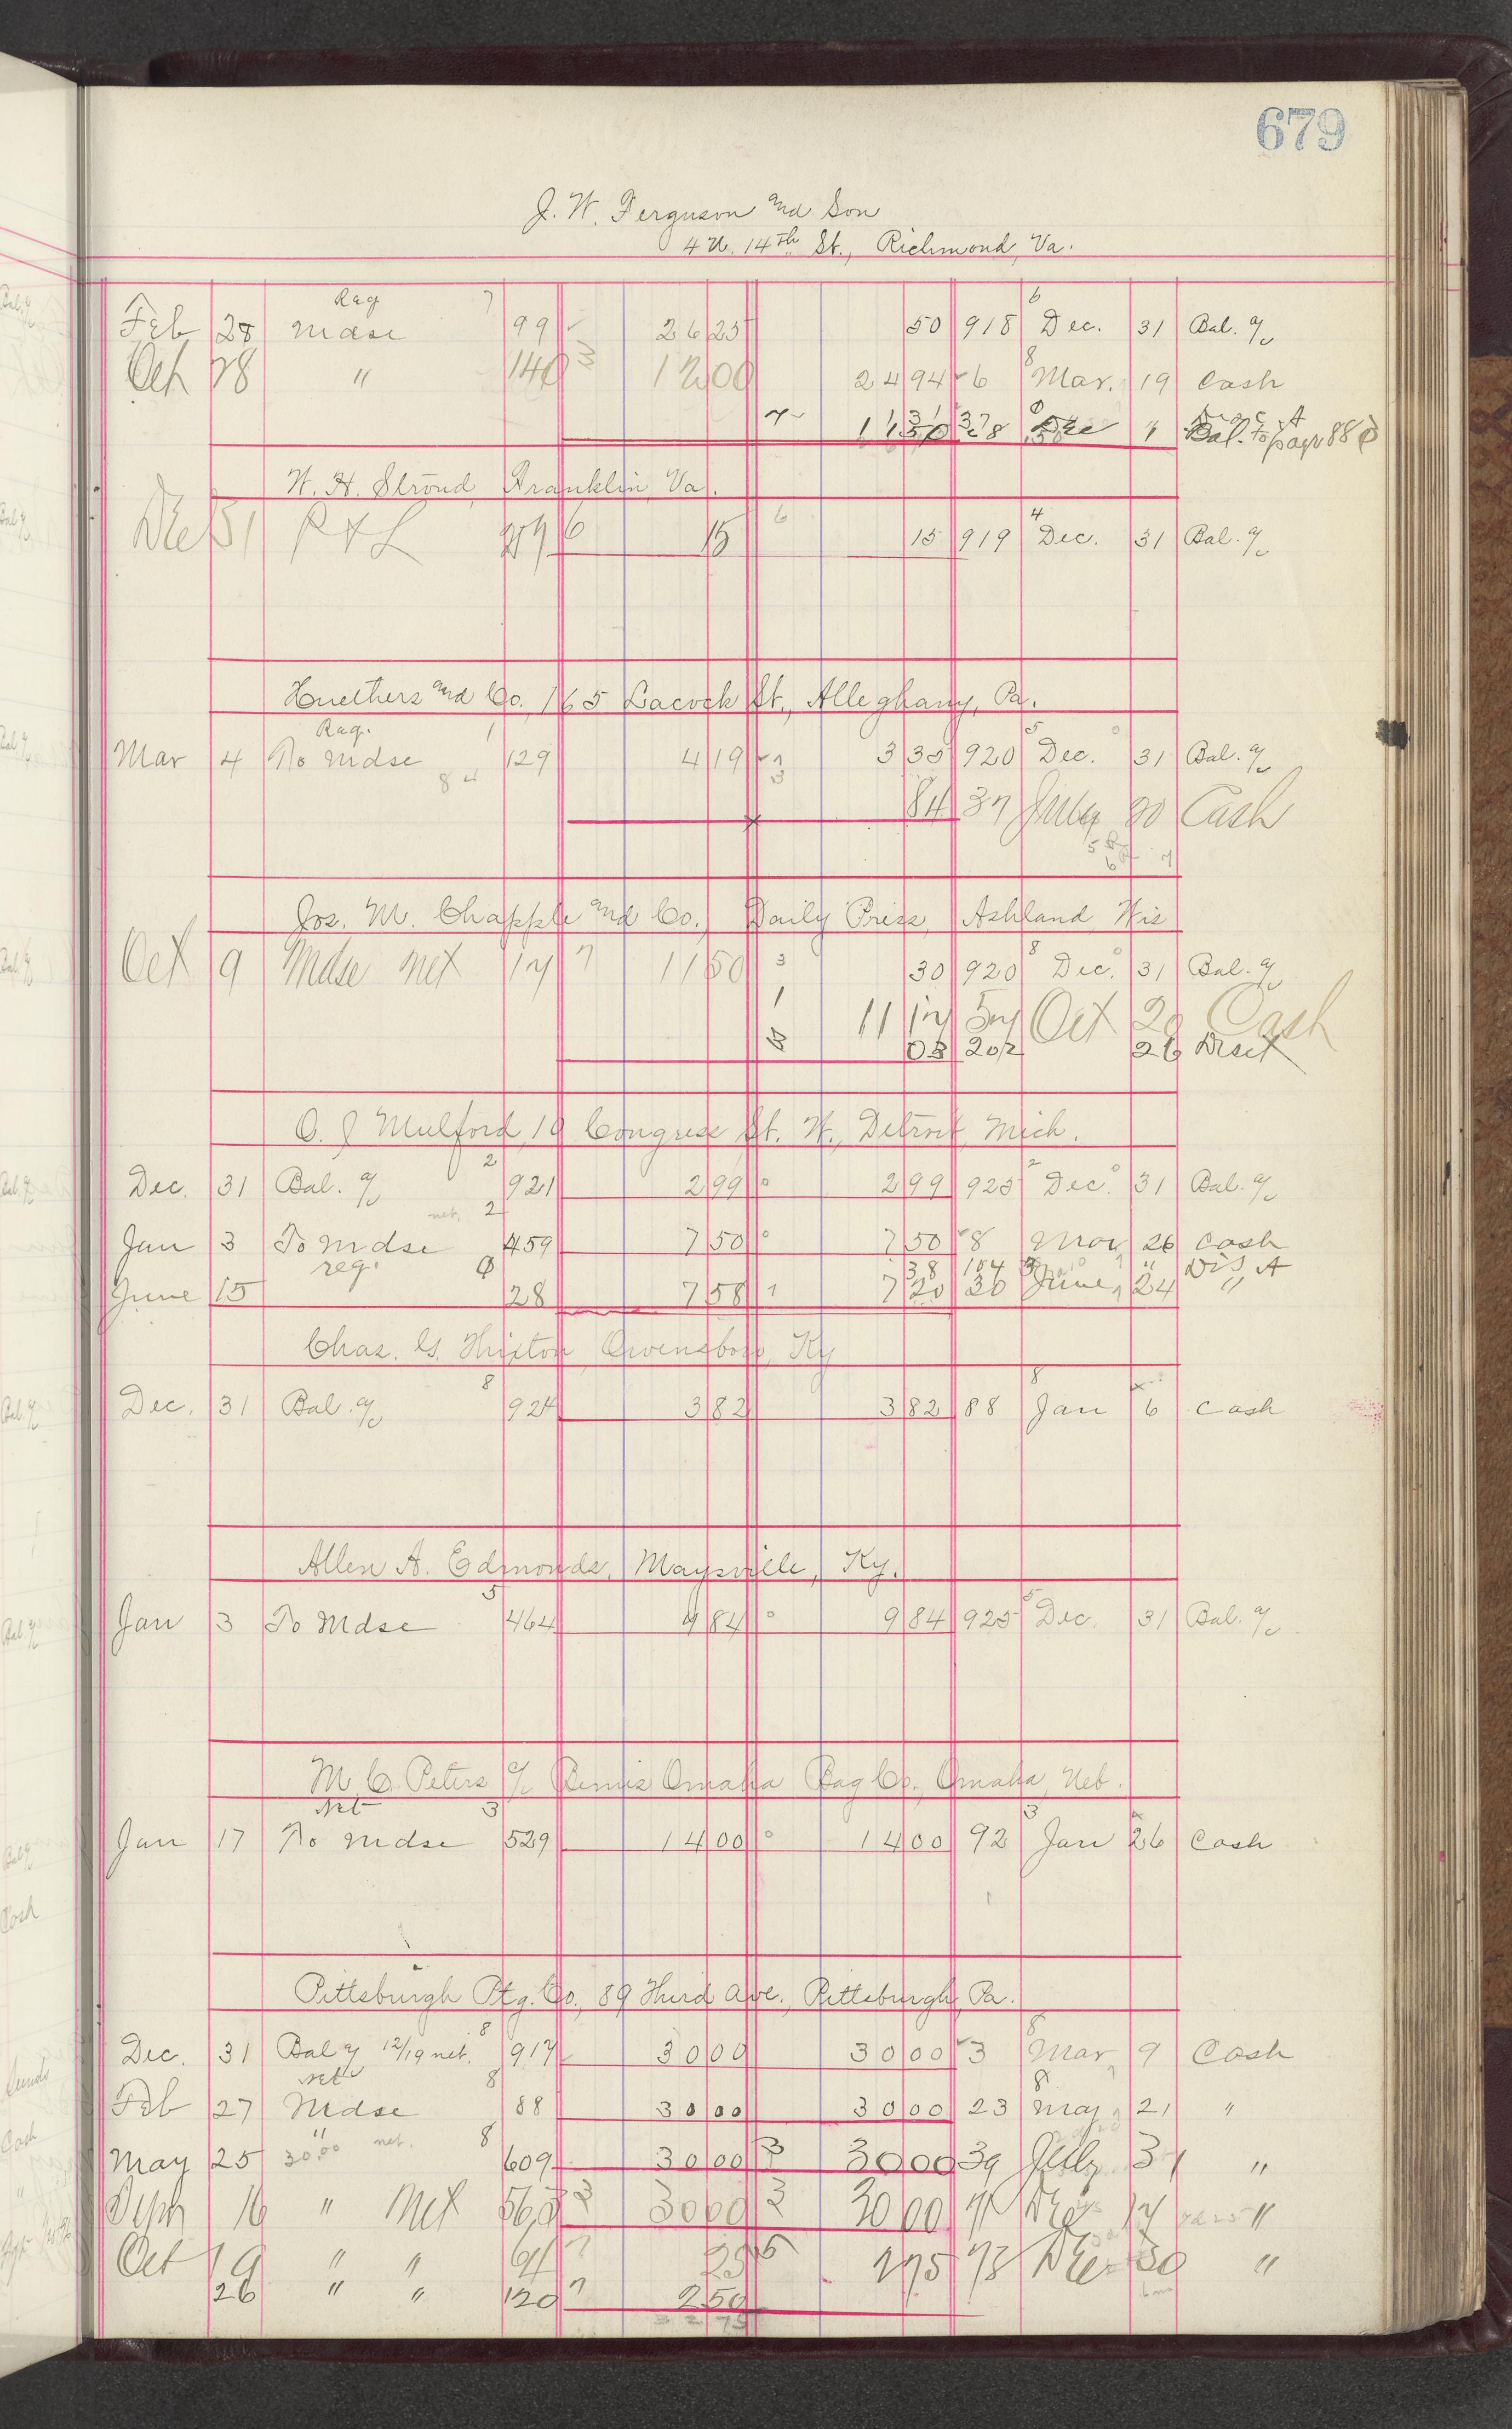 679
J. W. Ferguson and Son
4 N. 14th St., Richmond, Va.
Reg 7
Feb 28 Mdse 99 26 25 50 918 6 Dec. 31 Bal. a/c
Oct 28 " 140 3 12 00 24 94 6 8 Mar. 19 Cash
Bal. to page 880
W. H. Stroud, Franklin, Va.
Dec 31 P & L 6 15 6 15 919 4 Dec. 31 Bal. a/c
Huethers and Co. 165 Lacock St., Alleghany, Pa.
Reg. 1
Mar 4 To Mdse 129 4 19 3 35 920 5 Dec. 31 Bal. a/c
84
84 37 July 20 Cash
Jos. M. Chapple and Co., Daily Press, Ashland Wis
Oct 9 Mdse net 17 7 11 50 3 30 920 8 Dec. 31 Bal. a/c
1 11 17 57 Oct 20 Cash
03 202 26 Disct
O. J Mulford, 19 Congress St. W., Detroit, Mich.
Dec. 31 Bal. a/c 2 921 2 99 2 99 925 2 Dec. 31 Bal. a/c
net. 2
Jan 3 To Mdse 459 7 50 7 50 8 Mar 26 Cash
reg. 38 104 " Dis A
June 15 28 7 58 1 7 20 30 June 24 "
Chas. G. Hixton, Owensboro, Ky
Dec. 31 Bal. a/c 8 924 3 82 3 82 88 8 Jan 6 Cash
Allen A. Edmonds, Maysville, Ky.
Jan 3 To Mdse 5 464 9 84 9 84 925 5 Dec. 31 Bal. a/c
M C. Peters a/c Bemis Omaha Bag Co., Omaha, Neb.
Net 3
Jan 17 To Mdse 529 14 00 14 00 92 3 Jan 26 Cash
Pittsburgh Ptg. Co., 89 Third Ave., Pittsburgh, Pa.
Dec. 31 Bal a/c 12/19 net. 8 917 30 00 30 00 3 8 Mar 9 Cash
net 8
Feb 27 Mdse 88 30 00 30 00 23 8 May 21 "
" net. 8
May 25 30.00 609 30 00 3 30 00 39 July 31 "
Sept 16 " Net 563 3 30 00 3 30 00 71 Dec 17 "
Oct 19 " " 61 7 25 5 2 75 73 Dec 30 "
26 " " 120 7 2 50